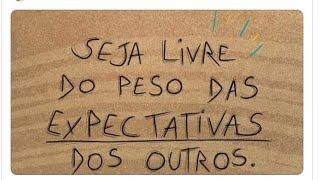 SEJA LIVRE
DO PESO DAS
EXPECTATIVAS
DOS OUTROS.